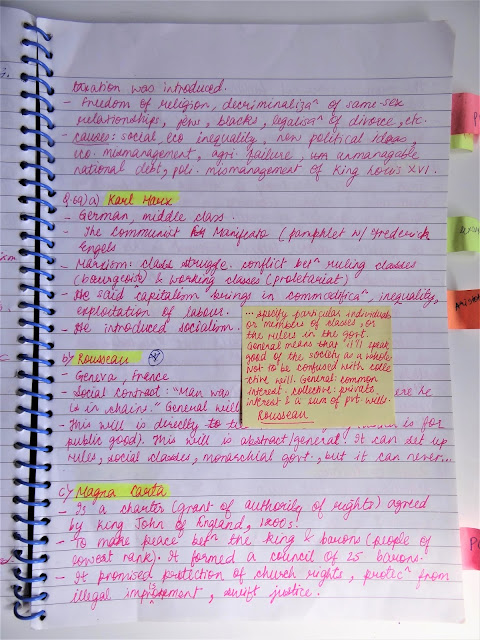 taxation was introduced.
- Freedom of religion, decriminaliza^n of same-sex
relationships, pens, blacks, legalisa^n of divorce, etc.
- causes: social, eco inequality, new political ideas,
eco. mismanagement, agri. failure, unmanagable
national debt, poli. mismanagement of King Louis XVI.
Q.6a)a) Karl Marx
- German, middle class.
- The Communist Manifesto (pamphlet w/ Frederick
Engels
- Marxism: class struggle. conflict bet^n ruling classes
(bourgeoise) & working classes (proletariat)
- He said capitalism brings in commodifica^n, inequality,
exploitation of labour.
- He introduced socialism.
b) Rousseau
- Geneva, France
- Social contract: "Man was
is in chains." General will
- This will is directly to
public good). This will is abstract/general. It can set up
rules, social classes, monarchial govt., but it can never...
... specify particular individuals
or members of classes, or
the rulers in the govt.
General means that it'll speak
good of the society as a whole
Not to be confused with colle
ctive will. General: common
interest, collective: private
interest & a sum of pvt. wills.
Rousseau
c) Magna Carta
- Is a charter (grant of authority of rights) agreed
by King John of England, 1200s.
- To make peace bet^n the king & barons (people of
lowest rank). It formed a council of 25 barons.
- It promised protection of church rights, protec^n from
illegal imprisonment, swift justice.